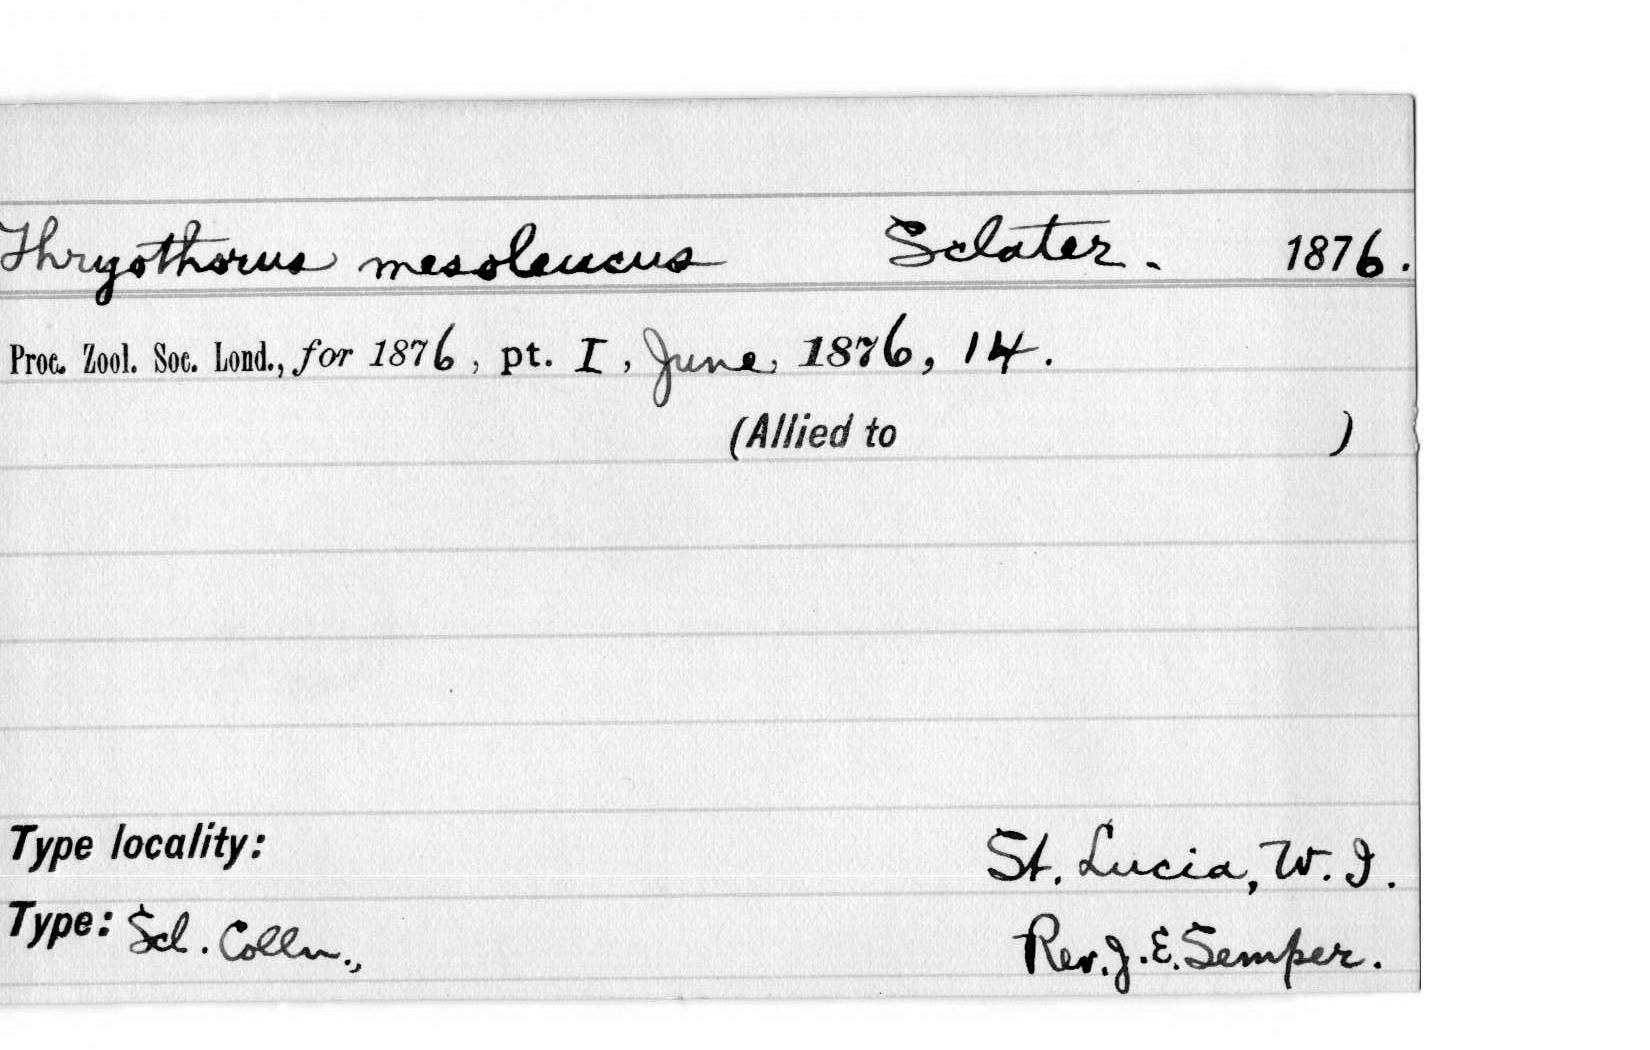 Thryothorus mesoleucus Sclater. 1876.
Proc. Zool. Soc. Lond., for 1876, pt. I, June, 1876, 14.
(Allied to )
Type locality: St. Lucia, W. I.
Type: Scl. Colln., Rev. J. E. Semper.